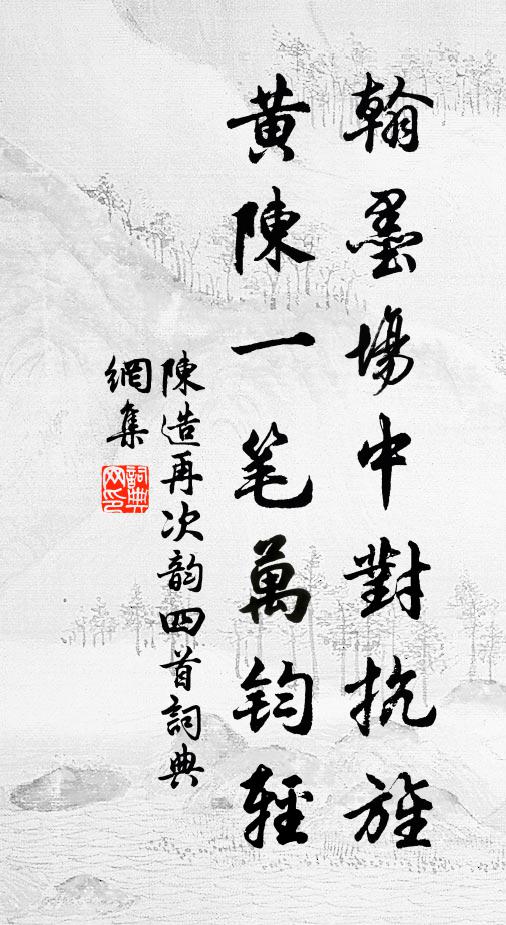 翰墨場中對抗旌
黃陳一笔萬鈞輕
陳造再次韵四首詞典
網集
詞典网印